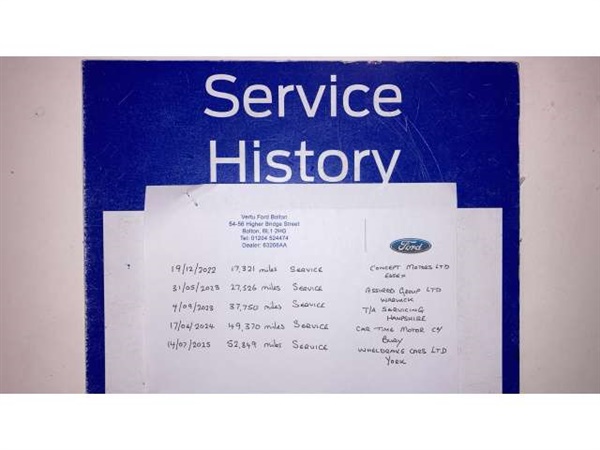 Service
History
Vertu Ford Bolton
54-56 Higher Bridge Street
Bolton, BL1 2HG
Tel: 01204 524474
Dealer: 63266AA
Ford
19/12/2022 17,321 miles SERVICE CONCEPT MOTORS LTD
ESSEX
31/05/2023 27,326 miles SERVICE ASSURED GROUP LTD
WARWICK
4/09/2023 37,750 miles SERVICE T/A SERVICING
HAMPSHIRE
17/04/2024 49,370 miles SERVICE CAR TIME MOTOR CO
BURY
14/07/2025 52,849 miles SERVICE WHELDRAKE CARS LTD
YORK